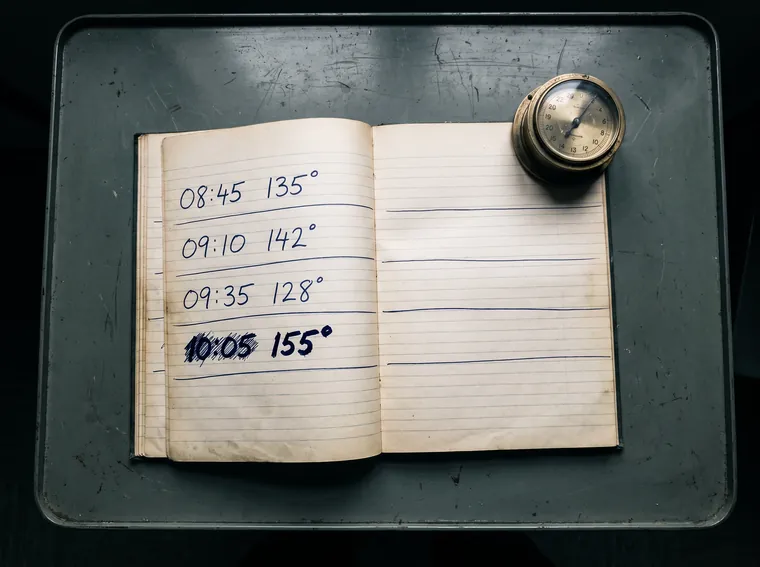 08:45 135°
09:10 142°
09:35 128°
10:05 155°